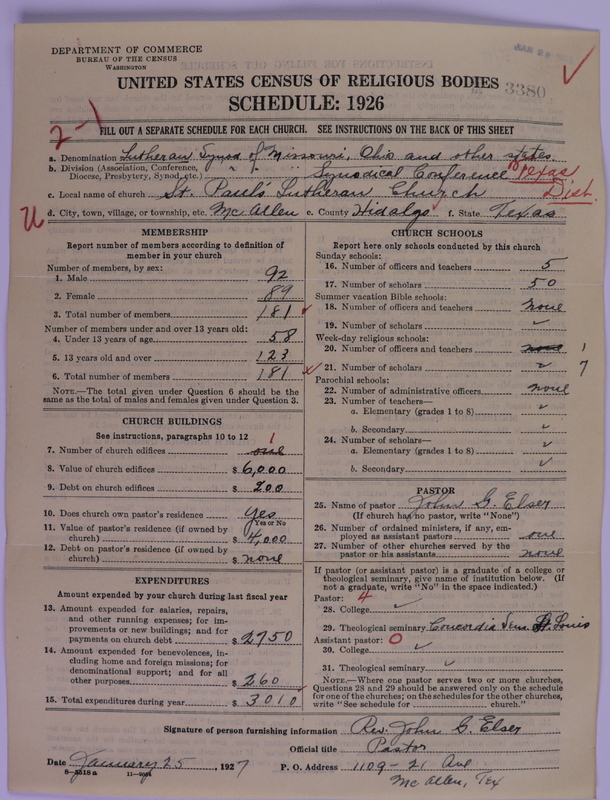 DEPARTMENT OF COMMERCE
BUREAU OF THE CENSUS
WASHINGTON
UNITED STATES CENSUS OF RELIGIOUS BODIES
3380
SCHEDULE: 1926
2-1
FILL OUT A SEPARATE SCHEDULE FOR EACH CHURCH. SEE INSTRUCTIONS ON THE BACK OF THIS SHEET
a. Denomination Lutheran Synod of Missouri, Ohio and other states
b. Division (Association, Conference, Diocese, Presbytery, Synod, etc. Synodical Conference Texas Dist.
c. Local name of church St. Paul's Lutheran Church
d. City, town, village, or township, etc. McAllen e. County Hidalgo f. State Texas
MEMBERSHIP
Report number of members according to definition of
member in your church
Number of members, by sex:
1. Male 92
2. Female 89
3. Total number of members 181
Number of members under and over 13 years old:
4. Under 13 years of age 58
5. 13 years old and over 123
6. Total number of members 181
NOTE.—The total given under Question 6 should be
same as the total of males and females given under Question 3.
CHURCH BUILDINGS
See instructions, paragraphs 10 to 12 1
7. Number of church edifices one
8. Value of church edifices $ 6,000
9. Debt on church edifices $ 200
10. Does church own pastor's residence yes
Yes or No
11. Value of pastor's residence (if owned by
church) $ 4,000
12. Debt on pastor's residence (if owned by
church) $ none
EXPENDITURES
Amount expended by your church during last fiscal year
13. Amount expended for salaries, repairs,
and other running expenses; for im-
provements or new buildings; and for
payments on church debt $ 2750
14. Amount expended for benevolences, in-
cluding home and foreign missions; for
denominational support; and for all
other purposes $ 260
15. Total expenditures during year $ 3010
CHURCH SCHOOLS
Report here only schools conducted by this church
Sunday schools:
16. Number of officers and teachers 5
17. Number of scholars 50
Summer vacation Bible schools:
18. Number of officers and teachers none
19. Number of scholars
Week-day religious schools:
20. Number of officers and teachers none 1
21. Number of scholars 7
Parochial schools:
22. Number of administrative officers none
23. Number of teachers—
a. Elementary (grades 1 to 8)
b. Secondary
24. Number of scholars—
a. Elementary (grades 1 to 8)
b. Secondary
PASTOR
25. Name of pastor John G. Elser
(If church has no pastor, write "None")
26. Number of ordained ministers, if any, em-
ployed as assistant pastors one
27. Number of other churches served by the
pastor or his assistants none
If pastor (or assistant pastor) is a graduate of a college or
theological seminary, give name of institution below. (If
not a graduate, write "No" in the space indicated.)
Pastor: 4
28. College
29. Theological seminary Concordia Sem. St. Louis
Assistant pastor: 0
30. College
31. Theological seminary
NOTE.—Where one pastor serves two or more churches,
Questions 28 and 29 should be answered only on the schedule
for one of the churches; on the schedules for the other churches,
write "See schedule for church."
Signature of person furnishing information Rev. John G. Elser
Official title Pastor
Date January 25, 1927 P. O. Address 1109-21 Ave
McAllen, Tex